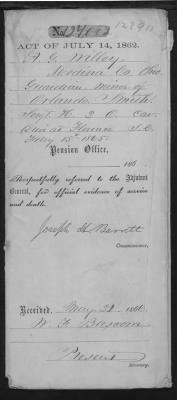 ACT OF JULY 14, 1862.
A. G. Willey,
Medina Co. Ohio
Guardian, minor of
Orlando Smith.
Sergt. H. 2 O. Cav.
Died at Florence S.C.
Feby 15th 1865.
Pension Office,
186
Respectfully referred to the Adjutant
General, for official evidence of service
and death.
Joseph H Barrett
Commissioner.
Received, May 21 1866
W. F. Bascom
Present
Attorney.